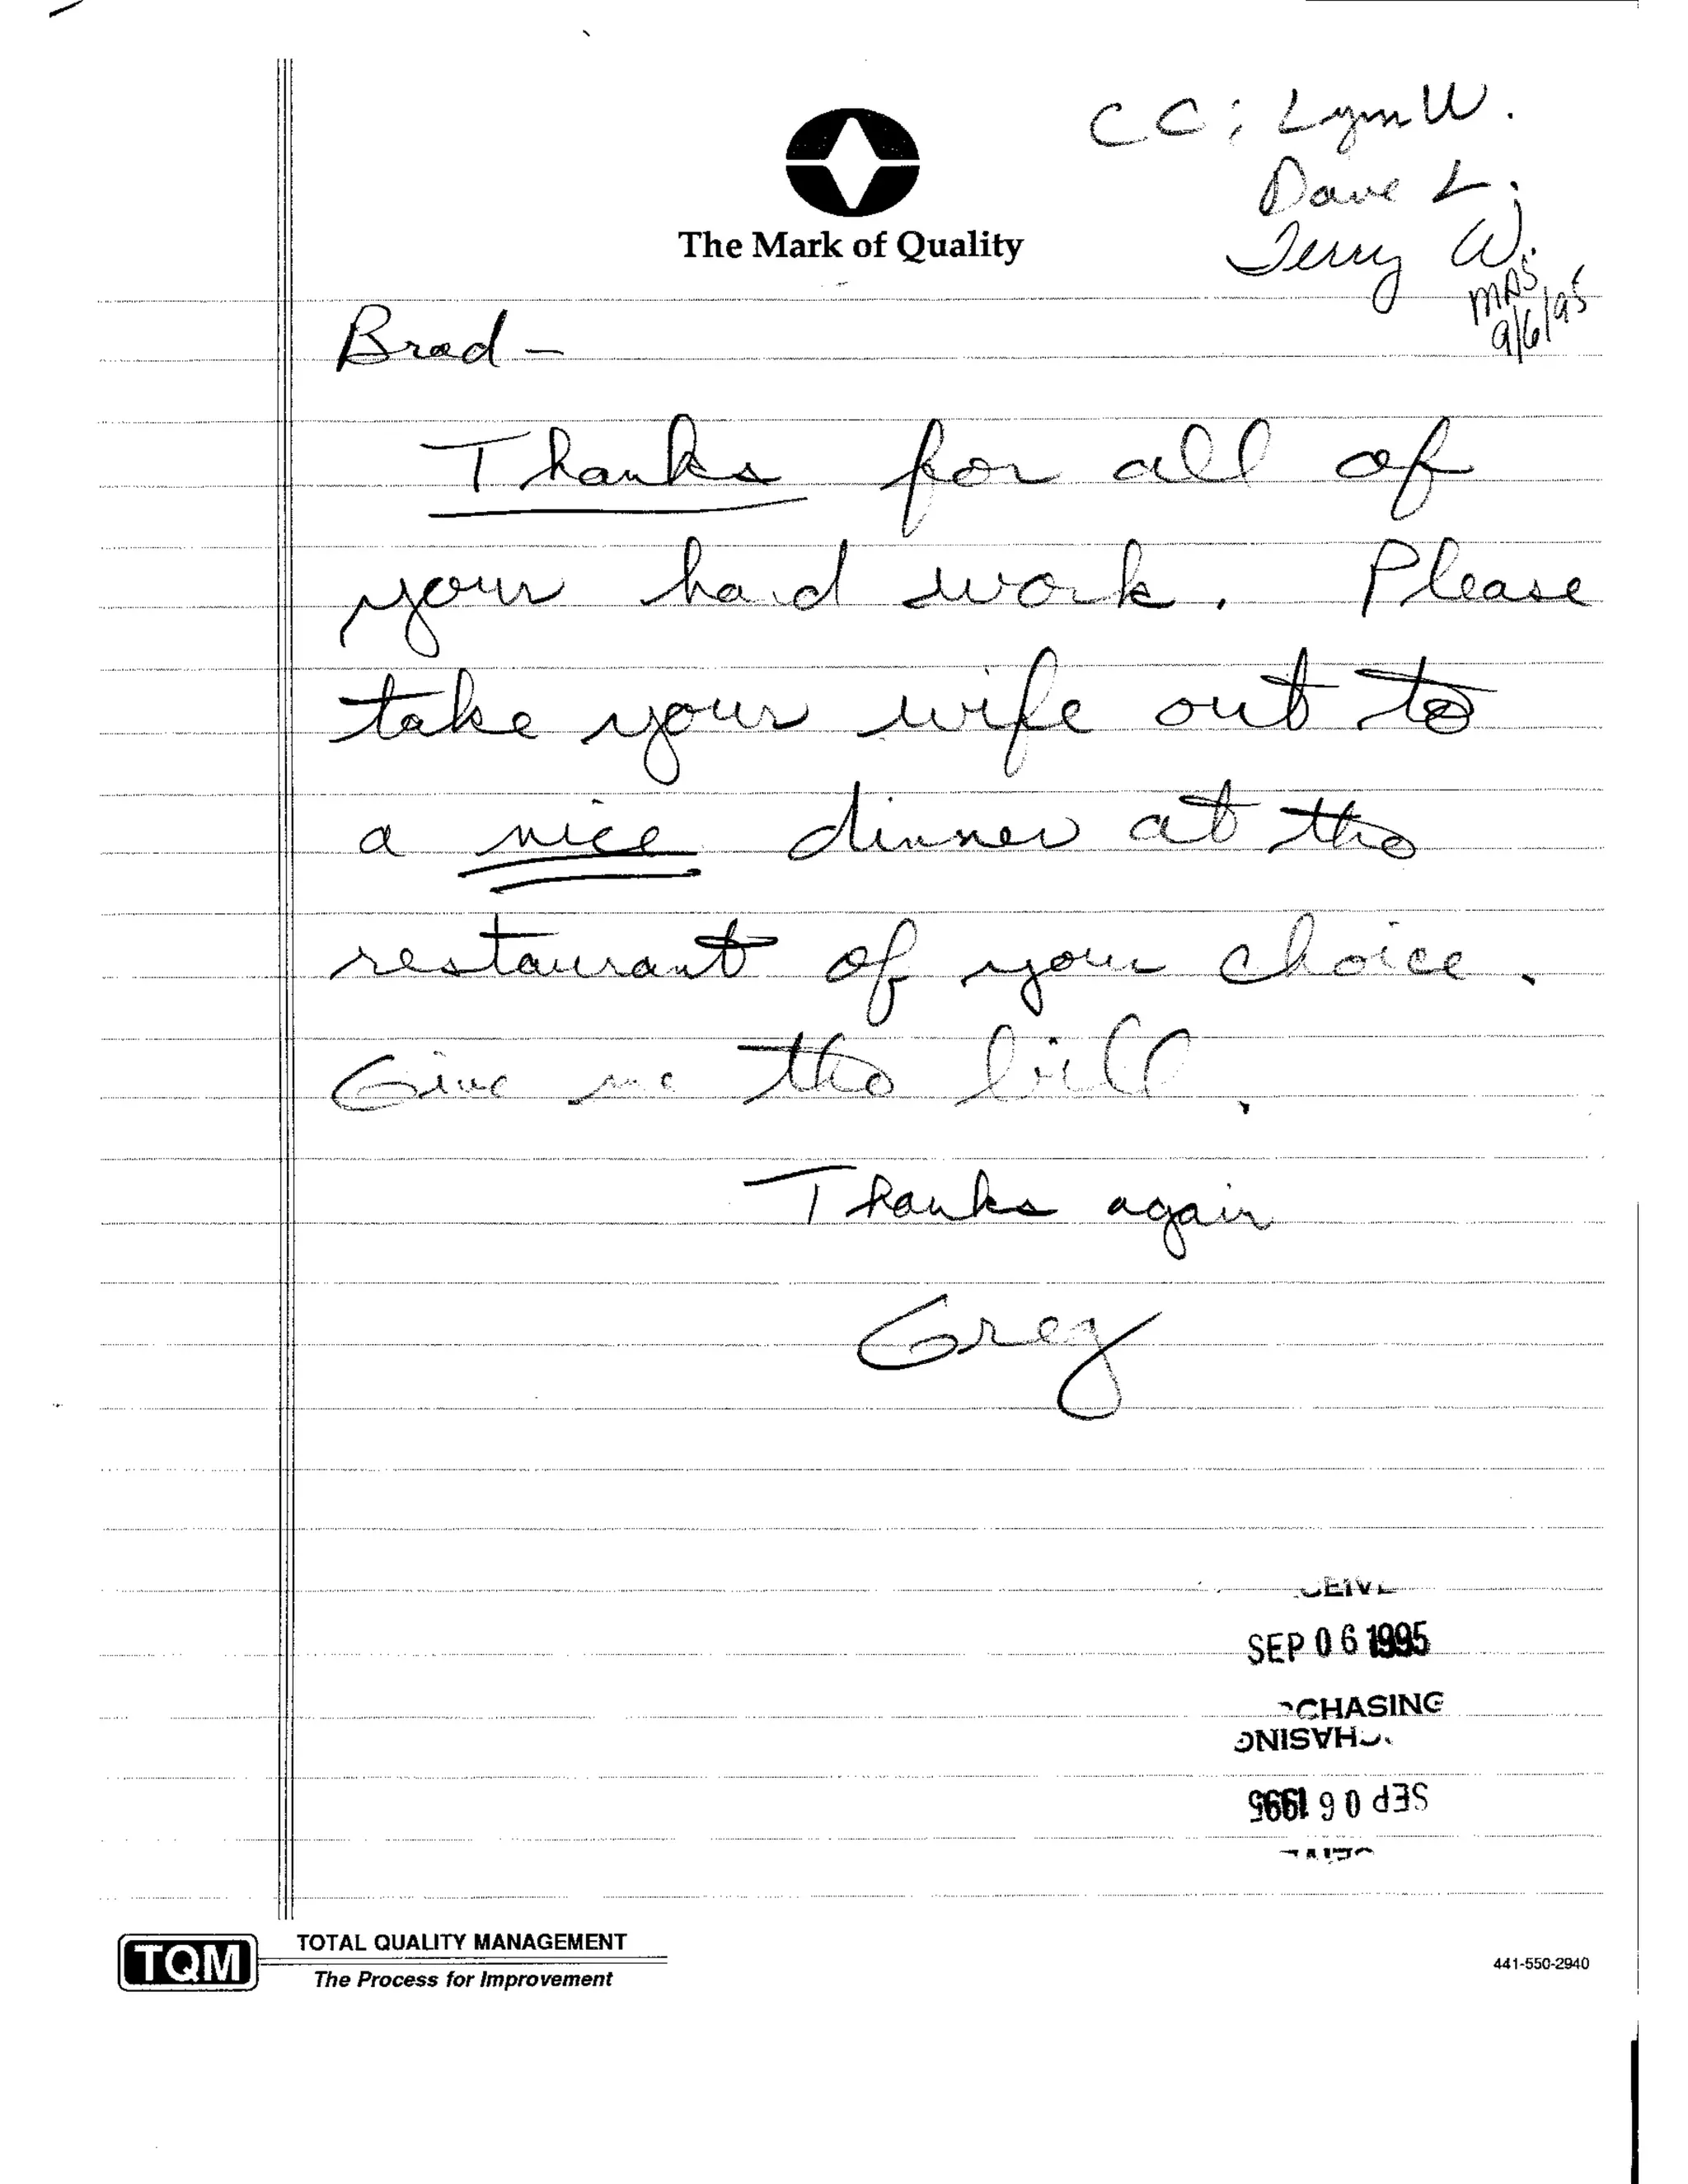 CC: Lynn W.
Dave L.
Jerry W.
MAS
9/6/95
The Mark of Quality
Brad -
Thanks for all of
your hard work. Please
take your wife out to
a nice dinner at the
restaurant of your choice.
Give me the bill.
Thanks again
Greg
CEIVE
SEP 06 1995
CHASING
CHASING
SEP 06 1995
TQM
TOTAL QUALITY MANAGEMENT
The Process for Improvement
441-550-2940